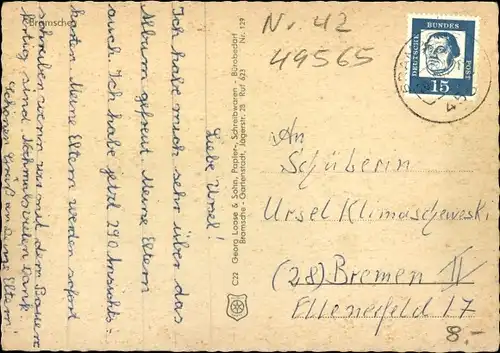 Bramsche
Liebe Ursel!
Ich habe mich sehr über das
Album gefreut. Meine Eltern
auch. Ich habe jetzt 290 Ansichts-
karten. Meine Eltern werden sofort
schreiben wenn wir mit dem Bauen
fertig sind. Nochmals vielen Dank
Schönen Gruß an Deine Eltern.
C22 Georg Loose & Sohn, Papier-, Schreibwaren - Bürobedarf
Bramsche - Gartenstadt, Jägerstr. 28 Ruf 623 Nr. 129
Nr. 42
49565
DEUTSCHE BUNDESPOST
15
An
Schülerin
Ursel Klimaschewski
(28) Bremen II
Ellenerfeld 17
8.-